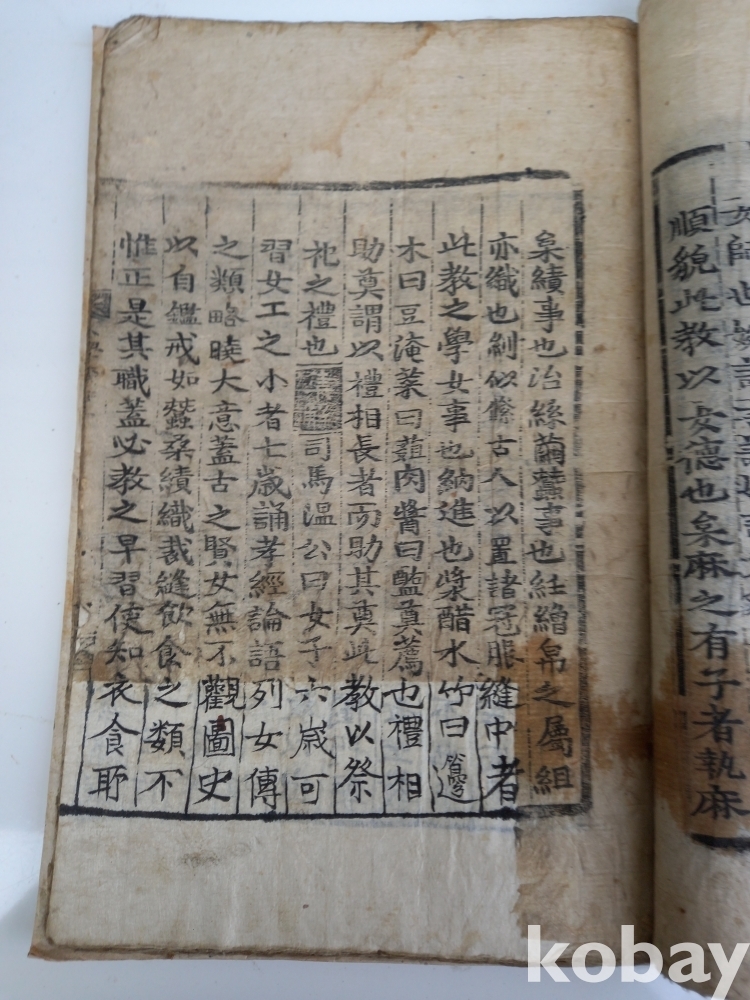 女師也婉
順貌此教以女德也枲麻之有子者執麻
枲績事也治絲繭蠶事也紝繒帛之屬組
亦織也紃似絛古人以置諸冠服縫中者
此教之學女事也納進也漿醋水竹曰籩
木曰豆淹菜曰葅肉醬曰醢奠薦也禮相
助奠謂以禮相長者而助其奠此教以祭
祀之禮也 司馬溫公曰女子六歲可
習女工之小者七歲誦孝經論語列女傳
之類略曉大意蓋古之賢女無不觀圖史
以自鑑戒如蠶桑績織裁縫飮食之類不
惟正是其職蓋必教之早習使知衣食所
kobay